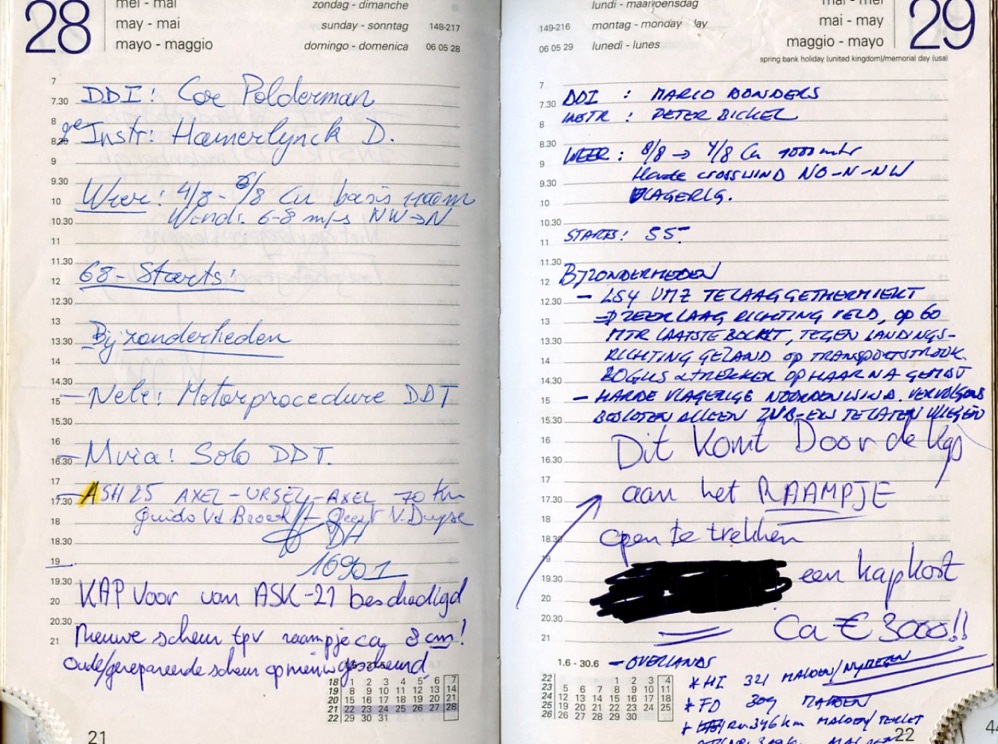 28
mei - mai
may - mai
mayo - maggio
zondag - dimanche
sunday - sonntag 148-217
domingo - domenica 06 05 28
7
7.30 DDI: Cor Polderman
8
8.30 Instr: Hamerlynck D.
9
9.30 Weer: 4/8 - 6/8 Cu basis 1100m
10 Wind: 6-8 m/s NW→N
10.30
11
11.30
12 68 - Starts!
12.30
13
13.30 Bijzonderheden
14
14.30
15 - Nele: Motorprocedure DDT
15.30
16
16.30 - Mvia: Solo DDT.
17
17.30 - ASH 25 AXEL - URSEL - AXEL 70 km
18 Guido Vd Broeck / Geert V. Duyse
18.30 DH
19 16901
19.30
20 KAP voor van ASK-21 beschadigd
21 nieuwe scheur tpv raampje ca 8 cm!
oude/gerepareerde scheur opnieuw gescheurd
18 1 2 3 4 5 6 7
19 8 9 10 11 12 13 14
20 15 16 17 18 19 20 21
21 22 23 24 25 26 27 28
22 29 30 31
21
lundi - maandag
149-216 montag - monday
06 05 29 lunedì - lunes
mei - mai
mai - may
maggio - mayo
29
spring bank holiday (united kingdom)/memorial day (usa)
7
7.30 DDI : MARIO DONDERS
8 INSTR : PETER BICKEL
8.30
9 WEER : 8/8 → 4/8 Cu 1000 mtr
9.30 Harde CROSSWIND NO-N-NW
10 VLAGERIG.
10.30
11 STARTS: 55
11.30
12 BIJZONDERHEDEN
12.30 - LS4 UMZ TE LAAG GETHERMIEKT
13 ⇒ ZEER LAAG RICHTING VELD, OP 60
13.30 MTR LAATSTE BOCHT, TEGEN LANDINGS-
14 RICHTING GELAND OP TRANSPORTSTROOK.
14.30 BOGUS & TREKKER OP HAAR NA GEMIST
15 - HARDE VLAGERIGE NOORDENWIND. VERVOLGENS
15.30 BESLOTEN ALLEEN ZVB-EN TE LATEN VLIEGEN
16 Dit komt Door de kap
16.30
17 aan het RAAMPJE
17.30
18 open te trekken
18.30
19
19.30 een kap kost
20
20.30 Ca € 3000!!
21
1.6 - 30.6 - OVERLANDS
22 1 2 3 4
23 5 6 7 8 9 10 11
24 12 13 14 15 16 17 18
25 19 20 21 22 23 24 25
26 26 27 28 29 30
* HI 321 MALDEN/NYMEGEN
* FD 309 MALDEN
* RU 346 km MALDEN/TERLET
22